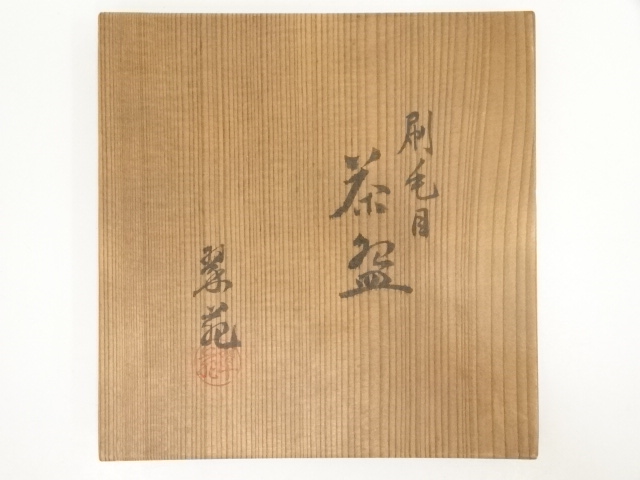 刷毛目
茶盌
翠苑